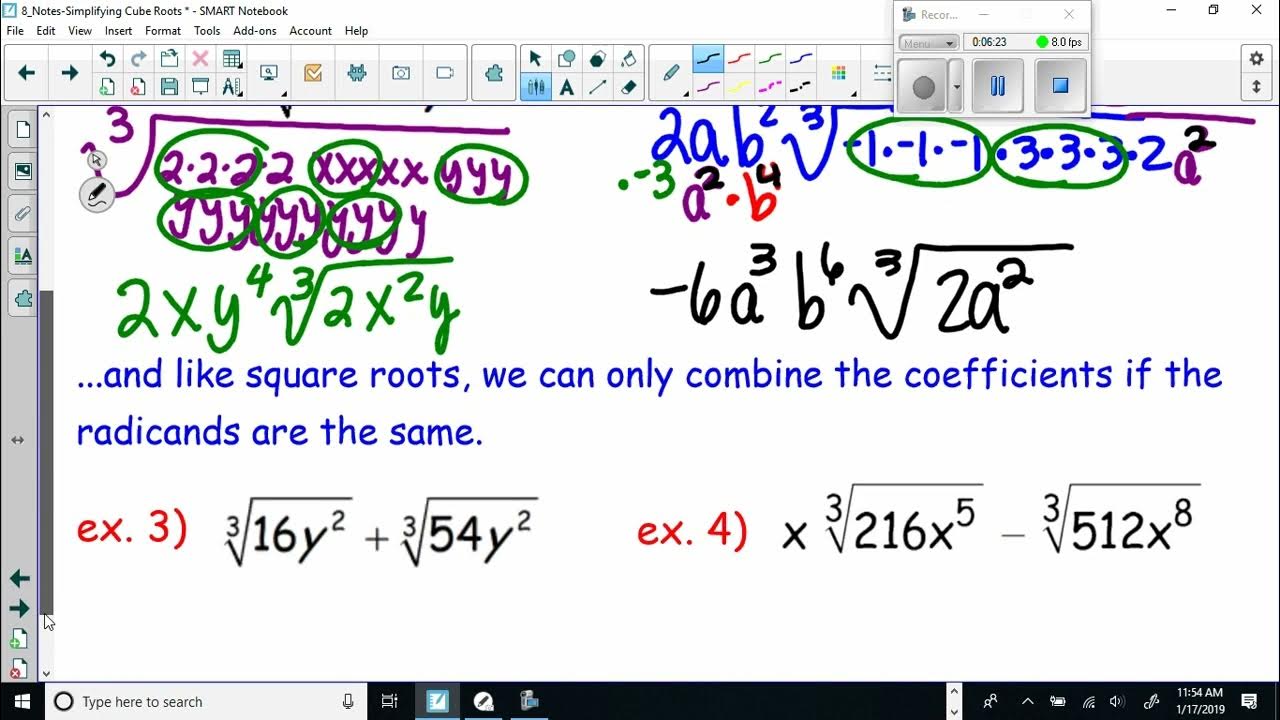 8_Notes-Simplifying Cube Roots * - SMART Notebook
Recor...
File Edit View Insert Format Tools Add-ons Account Help
Menu 0:06:23 8.0 fps
3√ 2·2·2·2 xxxxx yyy
yyy yyy yyy y
2xy⁴ ∛2x²y
2ab² ∛ -1·-1·-1·3·3·3·2a²
·-3 a²·b⁴
-6a³b⁶ ∛2a²
...and like square roots, we can only combine the coefficients if the
radicands are the same.
ex. 3) ∛16y² + ∛54y²
ex. 4) x ∛216x⁵ − ∛512x⁸
Type here to search
11:54 AM
1/17/2019